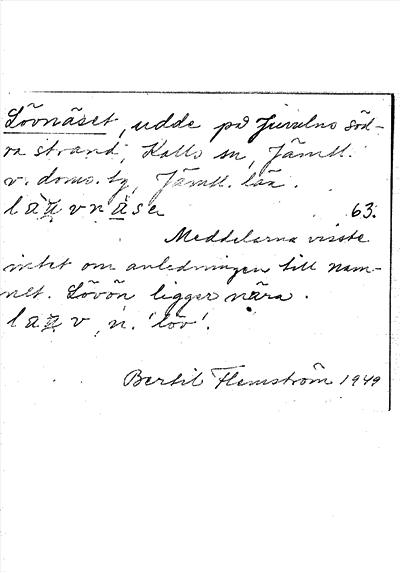 Lövnäset, udde på Juvulns söd-
ra strand, Kalls sn, Jämtl.
v. doms. tg, Jämtl. län.
laųvnäse 63.
Meddelarna visste
intet om anledningen till nam-
net. Lövön ligger nära.
laųv, n. 'löv'.
Bertil Flemström 1949